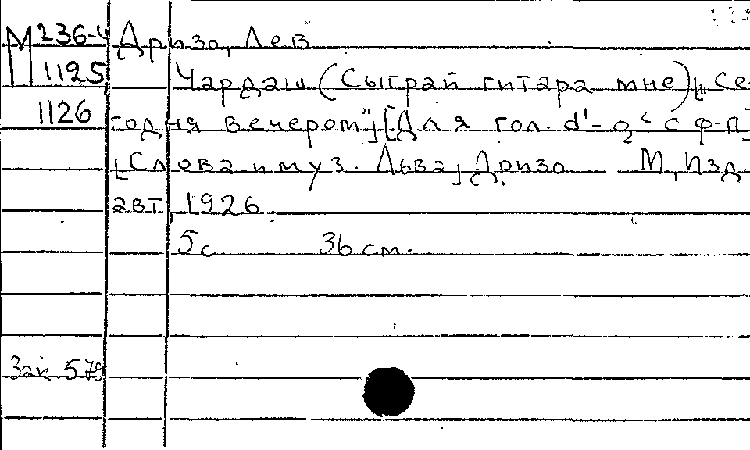 М 236-4 Дризо, Лев
1125 Чардаш (Сыграй гитара мне) „Се-
1126 годня вечером", [Для гол. d'-g² с ф-п.]
[Слова и муз. Льва] Дризо М., Изд.
авт., 1926.
5 с. 36 см.
Зак 579